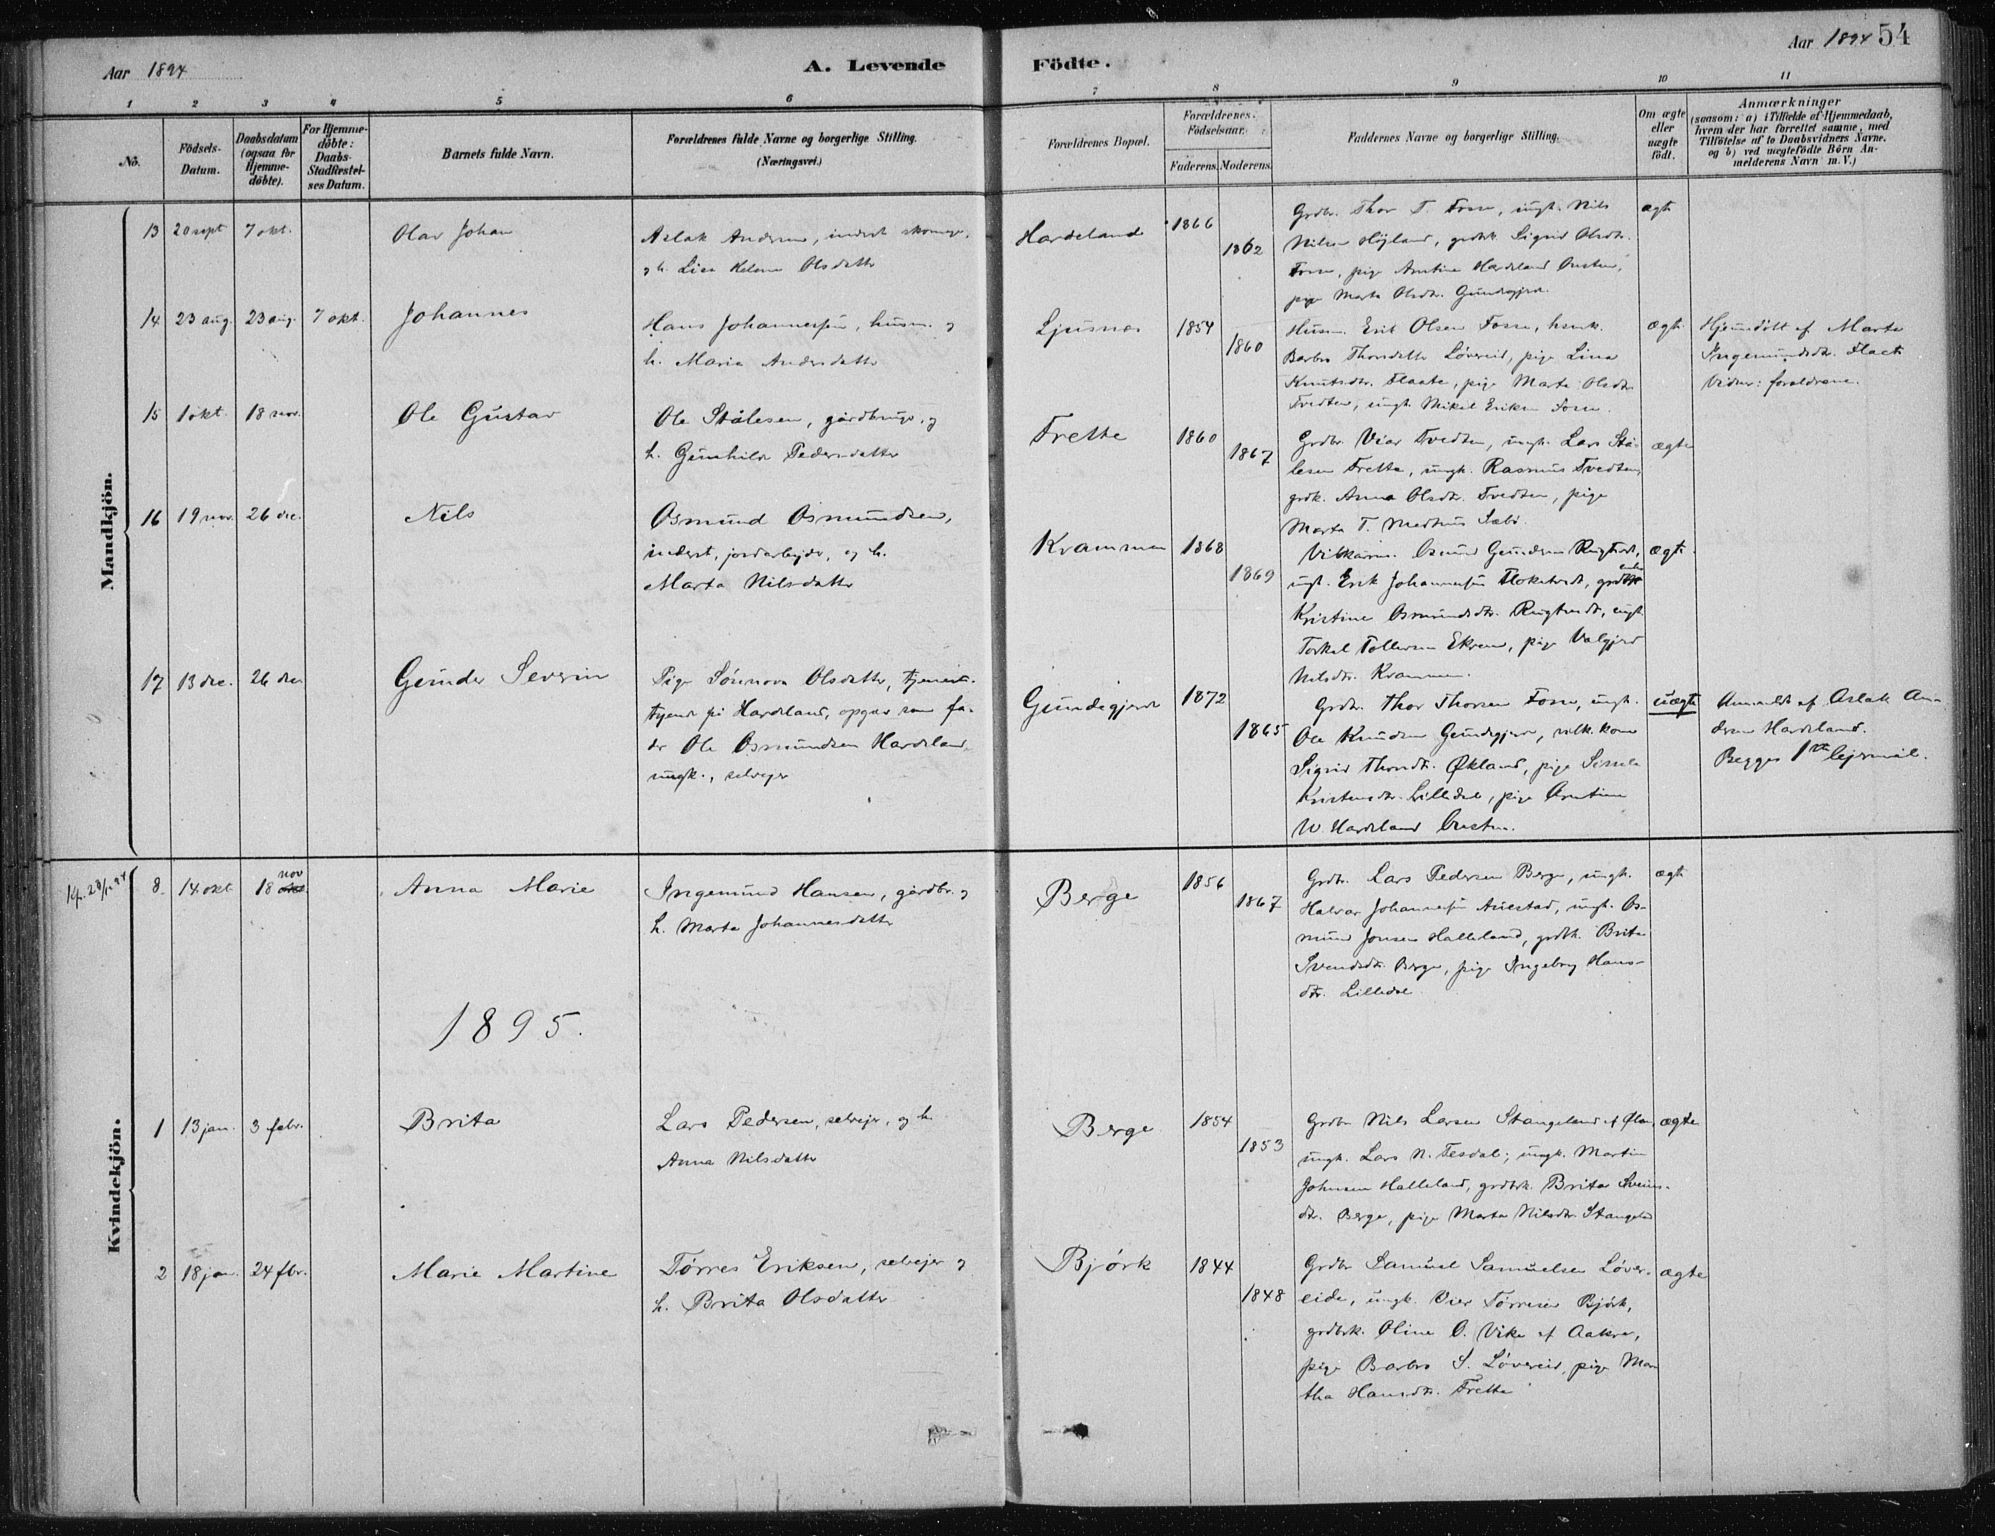 Aar 1894
A. Levende
Födte.
Aar 1894 54
1 2 3 4 5 6 7 8 9 10 11
No.
Födsels-
Datum.
Daabsdatum
(ogsaa for
Hjemme-
döbte).
For Hjemme-
döbte:
Daabs-
Stadfæstel-
ses Datum.
Barnets fulde Navn.
Forældrenes fulde Navne og borgerlige Stilling.
(Næringsvei.)
Forældrenes Bopæl.
Forældrenes
Födselsaar.
Faderens. Moderens.
Faddernes Navne og borgerlige Stilling.
Om ægte
eller
uægte
födt.
Anmærkninger
(saasom: a) i Tilfælde af Hjemmedaab,
hvem der har forrettet samme, med
Tilföielse af to Daabsvidners Navne.
og b) ved uægtefödte Börn An-
melderens Navn m. V.)
Mandkjön.
13 20 sept 7 okt.
Olav Johan
Aslak Andersen, inderst
og h. Lisa Helene Olsdatter
Hardeland
1866
1862
Grdbr. Thor T. Fosse, ungk. Nils
Nilsen Høyland, grdbrk. Sigrid Olsdtr.
Fosse, pige Hardeland
pige Marta Olsdtr. Gundegjerde.
ægte
14 23 aug. 23 aug. 7 okt.
Johannes
Hans Johannessen, husm. og
h. Maria Andersdatter
Ljusnes
1854
1860
Husm. Erik Olsen Fosse, husk.
Barbro Thorsdatter Løvereid, pige Lina
Knutsdtr. Flaate, pige Marta Olsdtr.
Tvedten, ungk. Mikal Eriksen Fosse.
ægte
Hjemdöbt af Marta
Ingemundsdtr.
Vidner: forældrene.
15 1 okt. 18 nov.
Ole Gustav
Ole Stålesen, gårdbruger, og
h. Gunhilda Pedersdatter
Frette
1860
1867
Grdbr. Viar Tvedten, ungk. Lars Stå-
lesen Frette, ungk. Rasmus Tvedten,
grdk. Anna Olsdtr. Tvedten, pige
Marta T. Medhus Sæbö.
ægte
16 19 nov. 26 dec.
Nils
Osmund Osmundsen,
inderst, jordarbejder, og h.
Marta Nilsdatter
Krammen
1868
1869
Osmund Gundersen
ungk. Erik Johannessen
Kristine Osmundsdtr. ungk.
Torkel Tollevsen Ekren, pige Valgjerd
Nilsdtr. Krammen.
ægte
17 13 dec. 26 dec
Gunder Severin
Pige Sönnova Olsdatter, tjeneste-
tyende på Hardeland, opgav som fa-
der Ole Osmundsen Hardeland,
ungk., selvejer
Gundegjerde
1872
1865
Grdbr. Thor Thorsen Fosse, ungk.
Ole Knudsen Gundegjerde,
Sigrid Thorsdtr. Økland, pige Sissela
Kristensdtr. Lilledal, pige
Hardeland
uægte
Anmeldt af Aslak An-
dersen Hardeland.
Begges 1ste lejermål.
Kvindekjön.
8. 14 okt 18 nov
Anna Marie
Ingemund Hansen, gårdbr. og
h. Marta Johannesdatter
Berge
1856
1867
Grdbr. Lars Pedersen Berge, ungk.
Halvar Johannessen ungk. Os-
mund Jonsen Halleland, grdbk. Brita
Svendsdtr. Berge, pige Ingeborg Hans-
dtr. Lilledal
ægte
1895.
1 13 jan. 3 febr.
Brita
Lars Pedersen, selvejer, og h.
Anna Nilsdatter
Berge
1854
1853
Grdbr Nils Larsen Stangeland af Ølen
ungk. Lars N. Tesdal; ungk. Martin
Johnsen Halleland, grdbrk. Brita Svens-
dtr. Berge, pige Marta Nilsdtr. Stangeland
ægte
2 18 jan. 24 fbr.
Marie Martine
Tørres Eriksen, selvejer og
h. Brita Olsdatter
Bjørk
1844
1848
Grdbr Samuel Samuelsen Løver-
eide, ungk. Vier Tørresen Bjørk,
grdbrk. Oline O. Vike af Aakre,
pige Barbro S. Løvereid, pige Mar
tha Hansdtr. Frette
ægte